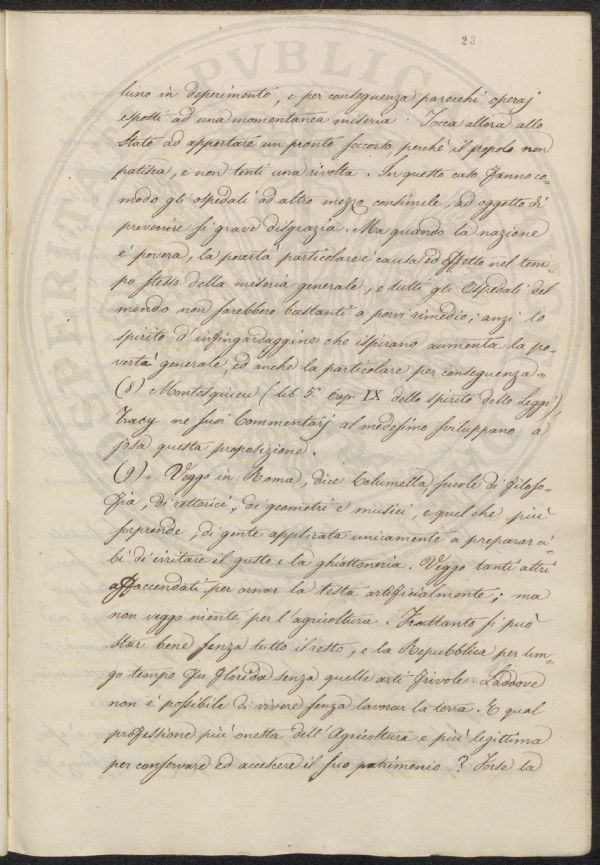 23
luno in deperimento, e per conseguenza parecchi operaj
esposti ad una momentanea miseria. Tocca allora allo
Stato ad apportare un pronto soccorso perchè il popolo non
patisca, e non tenti una rivolta. In questo caso fanno co-
modo gli ospedali od altro mezzo consimile, ad oggetto di
prevenire si grave disgrazia. Ma quando la nazione
è povera, la povertà particolare è causa ed effetto nel tem-
po stesso della miseria generale, e tutti gli Ospedali del
mondo non sarebbero bastanti a porvi rimedio; anzi lo
spirito d'infingardaggine che ispirano aumenta la po-
vertà generale, ed anche la particolare per conseguenza"
(8) Montesquieu (lib. 5° Cap. IX dello spirito delle Leggi),
Tracy ne suoi Commentarj al medesimo sviluppano a
josa questa proposizione.
(9) " Veggo in Roma, dice Columella, scuole di filoso-
fia, di rettorici, di geometri e musici, e quel che più
sorprende, di gente applicata unicamente a preparar ci-
bi di irritare il gusto e la ghiottoneria. Veggo tanti altri
affaccendati per ornar la testa artificialmente; ma
non veggo niente per l'agricoltura. Frattanto si può
star bene senza tutto il resto, e la Repubblica per lun-
go tempo fu florida senza quelle arti frivole. Laddove
non è possibile di vivere senza lavorar la terra. E qual
professione più onesta dell'Agricoltura e più legittima
per conservare ed accescere il suo patrimonio? Forse la